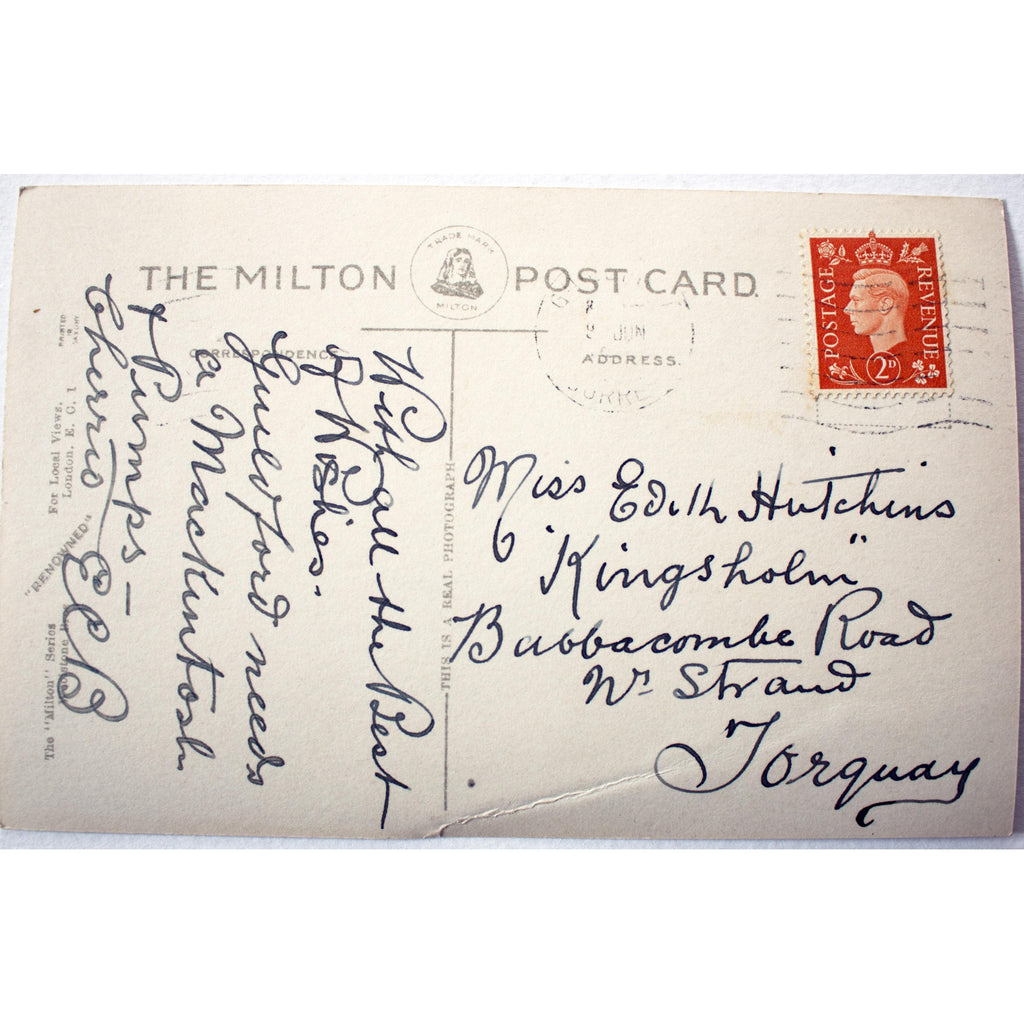 THE MILTON POST CARD.
TRADE MARK
MILTON
CORRESPONDENCE
ADDRESS.
With all the Best
of Wishes.
Guildford needs
a Mackintosh
& Pumps –
Chirrio ECB
Miss Edith Hutchins
"Kingsholm"
Babbacombe Road
Nr Strand
Torquay
POSTAGE
REVENUE
2D
8 JUN
THIS IS A REAL PHOTOGRAPH
PRINTED
IN
SAXONY
For Local Views,
London, E. C. 1
"RENOWNED"
The "Milton" Series